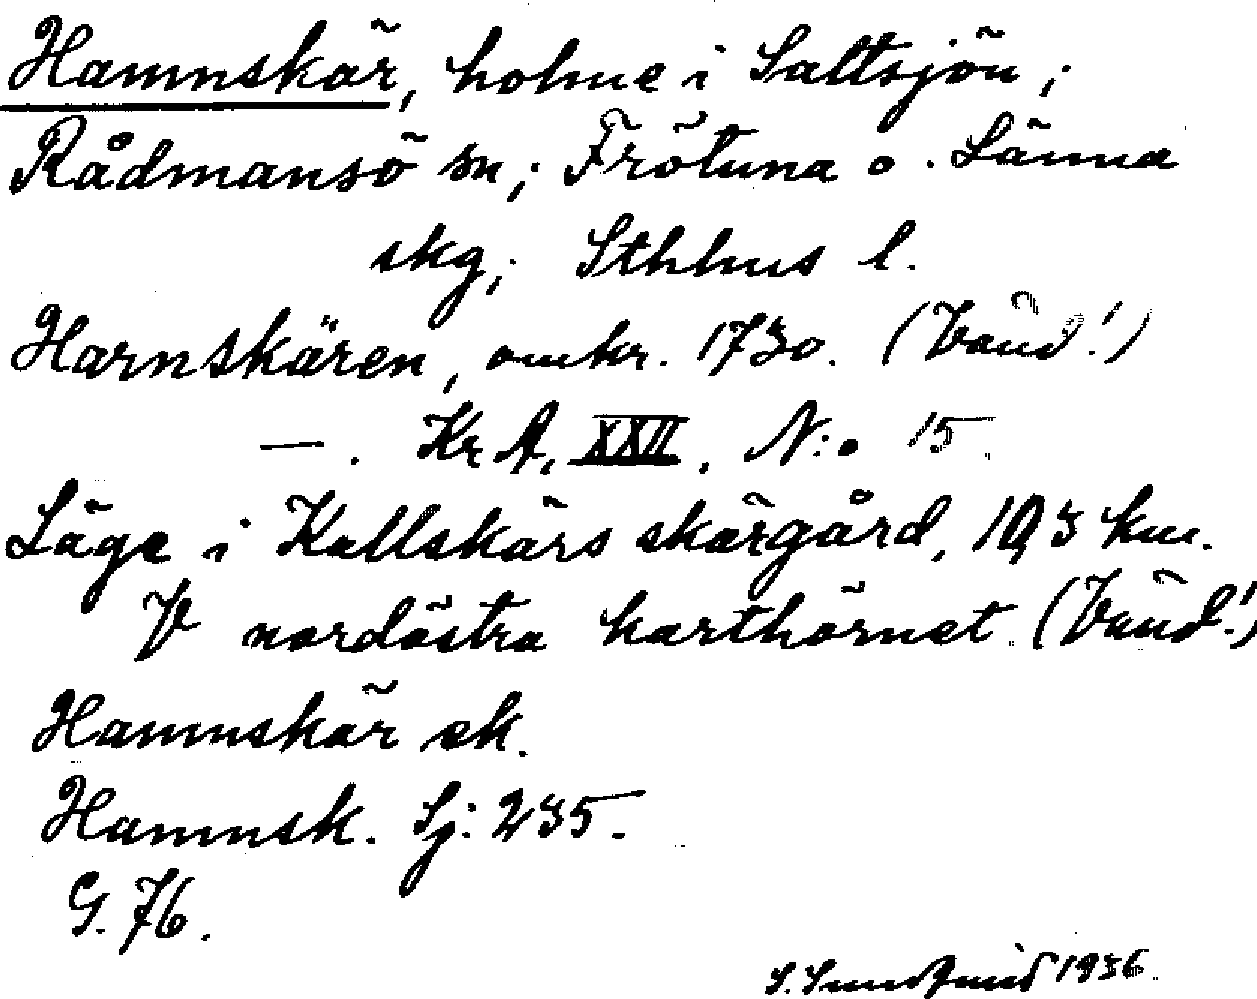 Hamnskär, holme i Saltsjön;
Rådmansö sn; Frötuna o. Länna
skg; Sthlms l.
Harnskären, omkr. 1730. (Vänd!)
—. KrA, XXII, N:o 15.
Läge i Kallskärs skärgård, 10,3 km.
V nordöstra karthörnet. (Vänd!)
Hamnskär ek.
Hamnsk. Sj: 235.
G. 76.
1936.